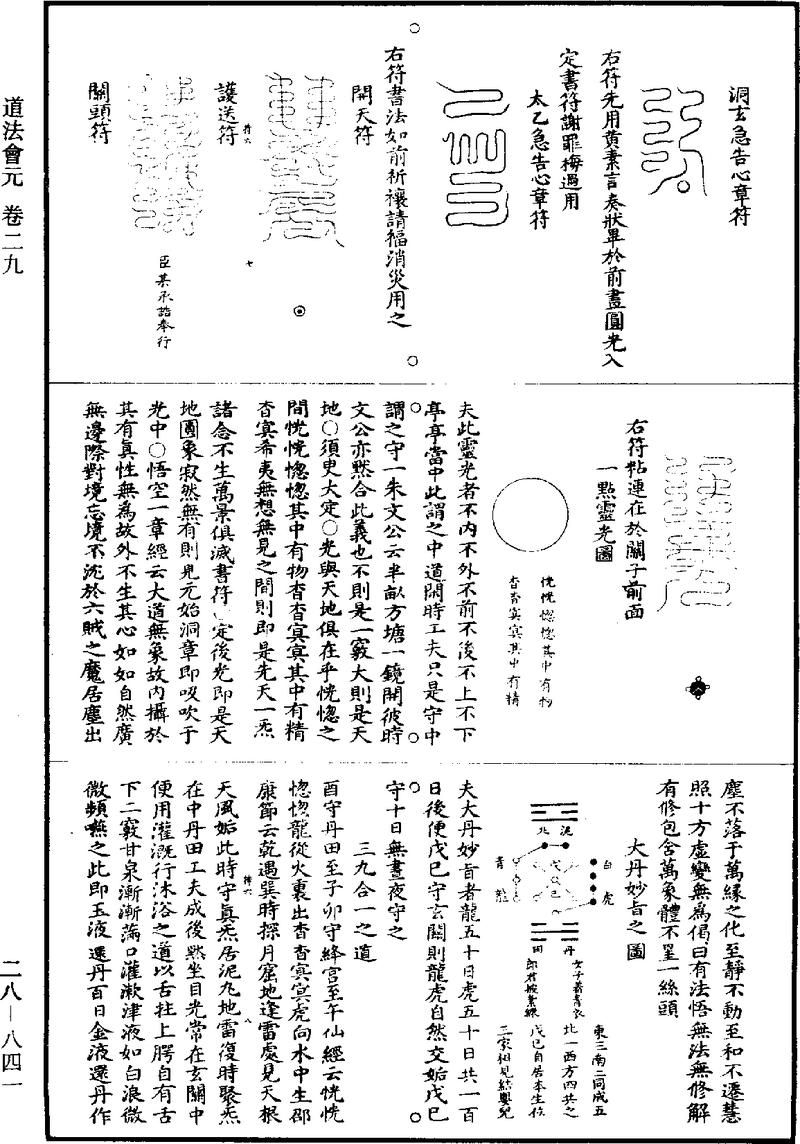 道法會元 卷二九
二八—八四一
洞玄急告心章符
右符先用黄素言奏狀畢於前畫圓光入
定書符謝罪悔過用
太乙急告心章符
右符書法如前祈禳請福消災用之
開天符
護送符
符六
七
臣某承誥奉行
關頭符
右符粘連在於關子前面
一點靈光圖
恍恍惚惚其中有物
杳杳冥冥其中有精
夫此靈光者不内不外不前不後不上不下
亭亭當中此謂之中道閑時工夫只是守中
謂之守一朱文公云半畝方塘一鏡開彼時
文公亦黙合此義也不則是一竅大則是天
地○須臾大定○光與天地俱在乎恍惚之
間恍恍惚惚其中有物杳杳冥冥其中有精
杳冥希夷無想無見之間則即是先天一炁
諸念不生萬景俱滅書符定後光即是天
地圓象寂然無有則見元始洞章即吸吹于
光中○悟空一章經云大道無象故内攝於
其有真性無為故外不生其心如如自然廣
無邊際對境忘境不沈於六賊之魔居塵出
塵不落于萬緣之化至靜不動至和不遷慧
照十方虛變無為偈曰有法悟無法無修解
有修包含萬象體不罣一絲頭
大丹妙旨之圖
東三南二同成五
北一西方四共之
戊己自居本生位
三家相見結嬰兒
女子著青衣
郎君披素練
白虎
青龍
泥
北
戊
己
丹
田
夫大丹妙旨者龍五十日虎五十日共一百
日後便戊己守玄關則龍虎自然交姤戊己
守十日無晝夜守之
三九合一之道
酉守丹田至子卯守絳宫至午仙經云恍恍
惚惚龍從火裏出杳杳冥冥虎向水中生邵
康節云乾遇巽時探月窟地逢雷處見天根
符六
天風姤此時守真炁居泥丸地雷復時聚炁
八
在中丹田工夫成後黙坐目光常在玄關中
便用灌溉行沐浴之道以舌拄上腭自有舌
下二竅甘泉漸漸滿口灌漱津液如白浪微
微頻嚥之此即玉液還丹百日金液還丹作